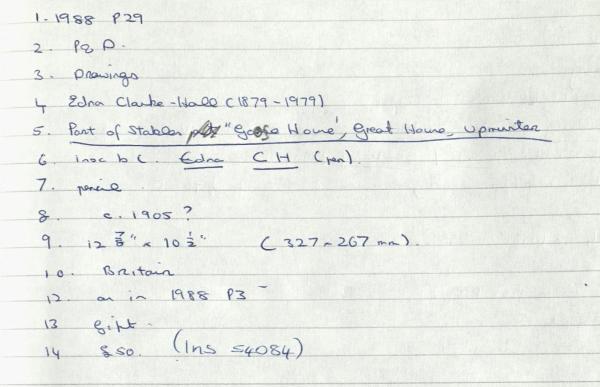 1. 1988 P29
2. P&D.
3. Drawings
4 Edna Clarke-Hall (1879-1979)
5. Part of Stables "Goose House", Great House, Upminster
6. insc b c. Edna C H (pen).
7. pencil
8. c. 1905?
9. 12 7/8" x 10 1/2" (327 x 267 mm).
10. Britain
12. as in 1988 P3
13 gift.
14 £50. (Ins 54084)